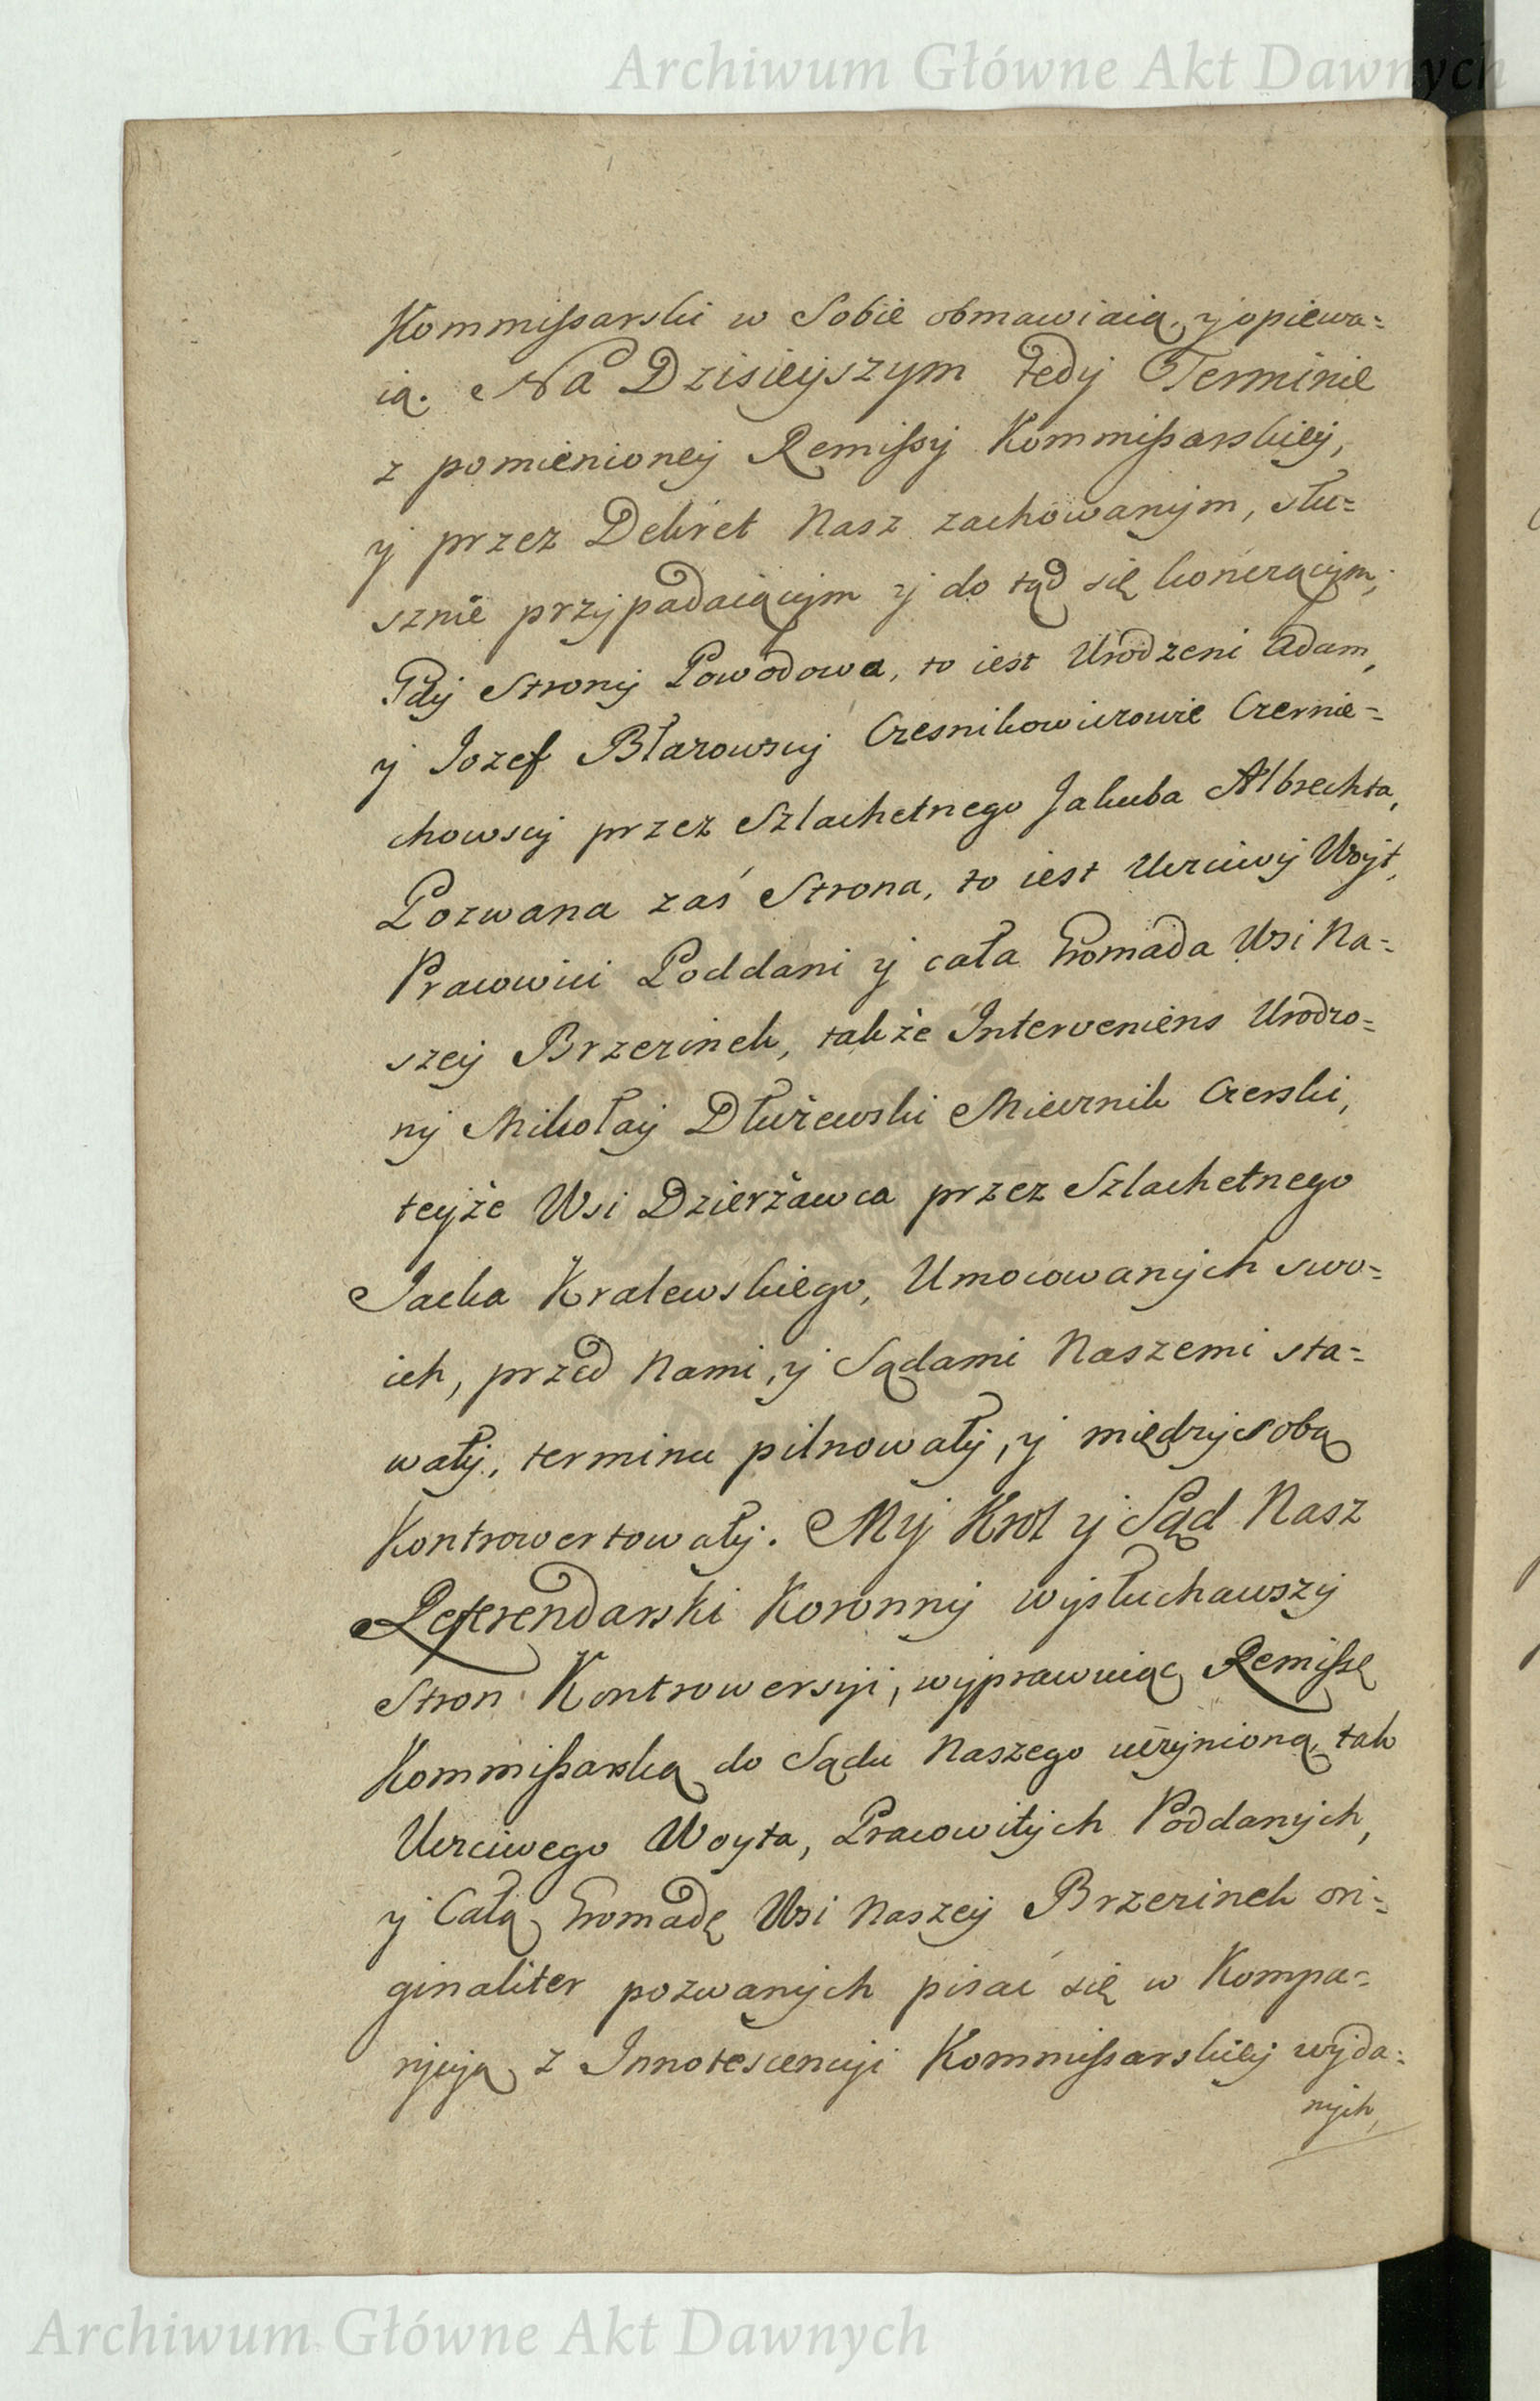 Archiwum Główne Akt Dawnych
Kommissarski w Sobie obmawiaią, y opiewa=
ią. Na Dzisieyszym tedy Terminie
z pomienioney Remissy Kommissarskiey,
y przez Dekret Nasz zachowanym, słu=
sznie przypadaiącym y do tąd się konczącym,
Gdy Strony Powodowa, to iest Urodzeni Adam,
y Jozef Błazowscy Czesnikowiczowie Czernie=
chowscy przez Szlachetnego Jakuba Albrechta,
Pozwana zaś Strona, to iest Uczciwy Woyt,
Pracowici Poddani y cała Gromada Wsi Na=
szey Brzezinek, także Interveniens Urodzo=
ny Mikołay Dłużewski Miecznik Czerski,
teyże Wsi Dzierżawca przez Szlachetnego
Jacka Kralewskiego, Umocowanych swo=
ich, przed Nami, y Sądami Naszemi sta=
wały, terminu pilnowały, y między sobą
Kontrowertowały. My Krol y Sąd Nasz
Referendarski Koronny wysłuchawszy
Stron Kontrowersyi, wyprawuiąc Remissę
Kommissarską do Sądu Naszego uczynioną, tak
Uczciwego Woyta, Pracowitych Poddanych,
y Całą Gromadę Wsi Naszey Brzezinek ori=
ginaliter pozwanych pisać się w Kompa=
nycyą z Innotescencyi Kommissarskiey wyda=
nych,
Archiwum Główne Akt Dawnych